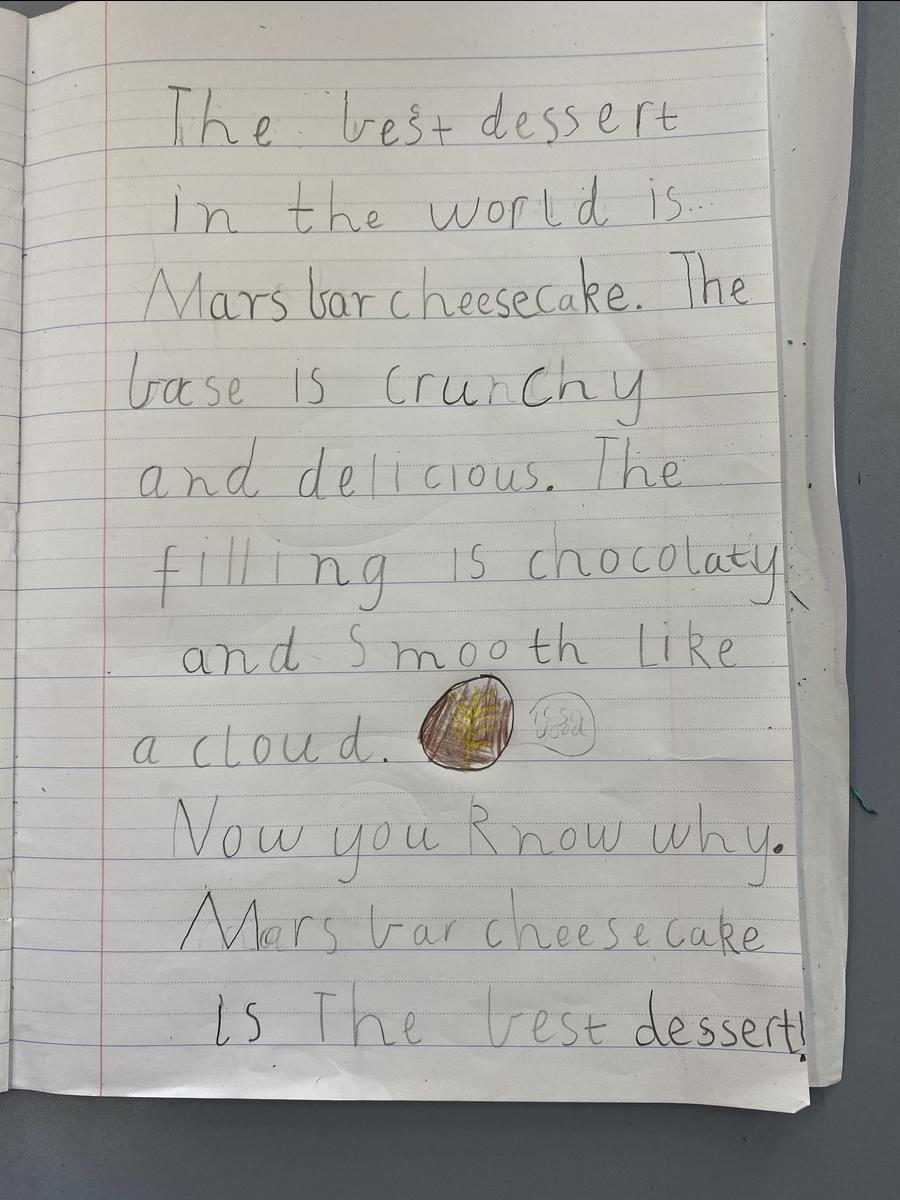 The best dessert
in the world is...
Mars bar cheesecake. The
base is crunchy
and delicious. The
filling is chocolaty
and smooth like
a cloud.
Now you know why.
Mars bar cheesecake
is The best dessert!